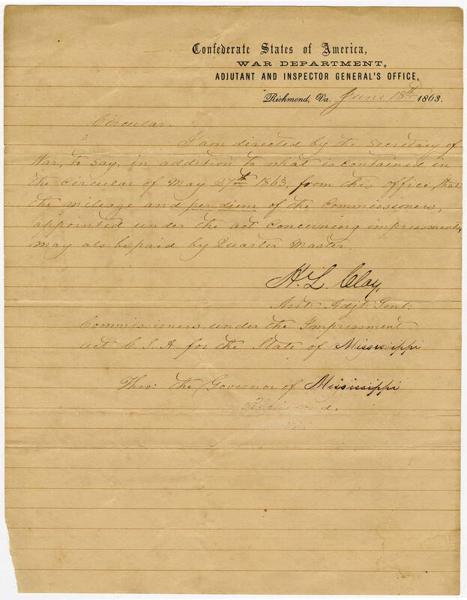 Confederate States of America,
WAR DEPARTMENT,
ADJUTANT AND INSPECTOR GENERAL'S OFFICE,
Richmond, Va. June 18th 1863.
Circular.
I am directed by the Secretary of
War, to say, in addition to what is contained in
the circular of May 27th 1863, from this office, that
the mileage and per diem of the Commissioners,
appointed under the act concerning impressments,
may also be paid by Quarter Master
H. L. Clay,
Asst. Adjt. Genl.
Commissioners under the Impressment
act C.S.A. for the State of Mississippi
Thro: the Governor of Mississippi